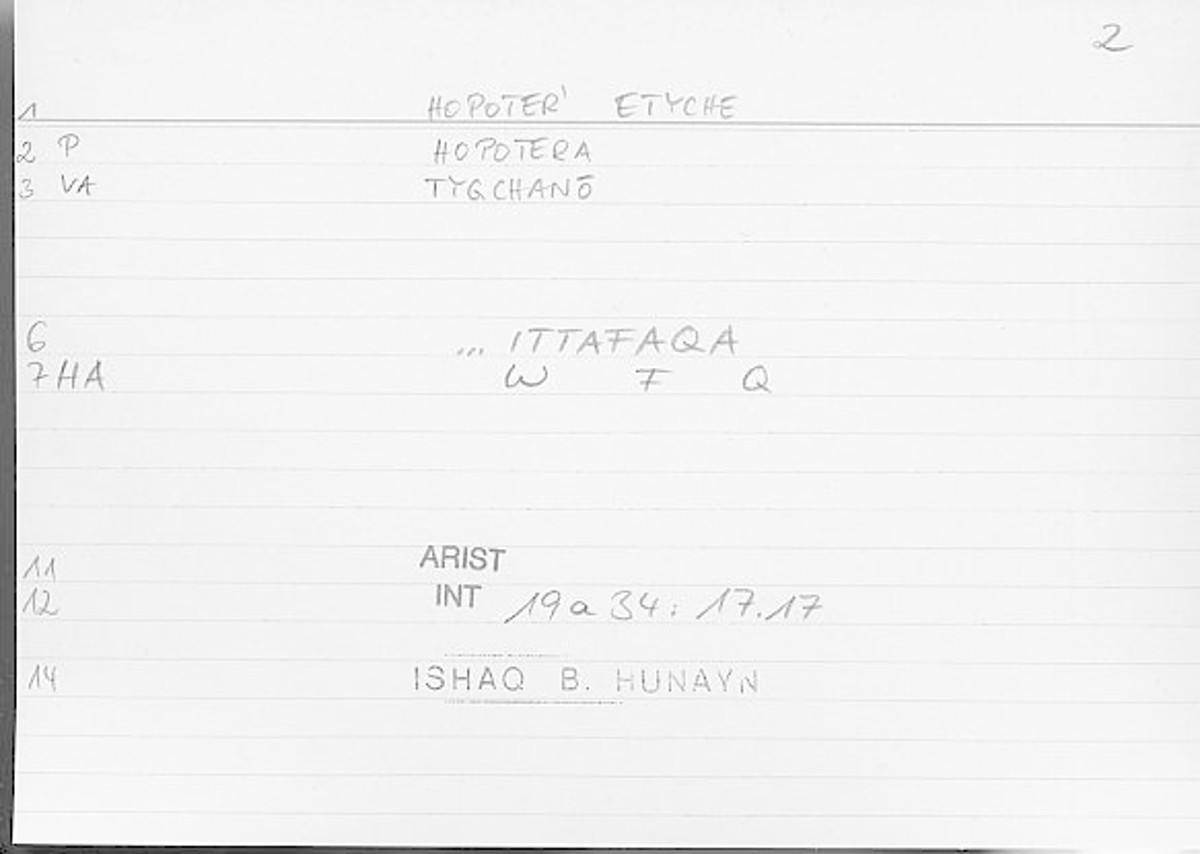 2
1 HOPOTER' ETYCHE
2 P HOPOTERA
3 VA TYGCHANŌ
6 ... ITTAFAQA
7 HA W F Q
11 ARIST
12 INT 19a34: 17.17
14 ISHAQ B. HUNAYN